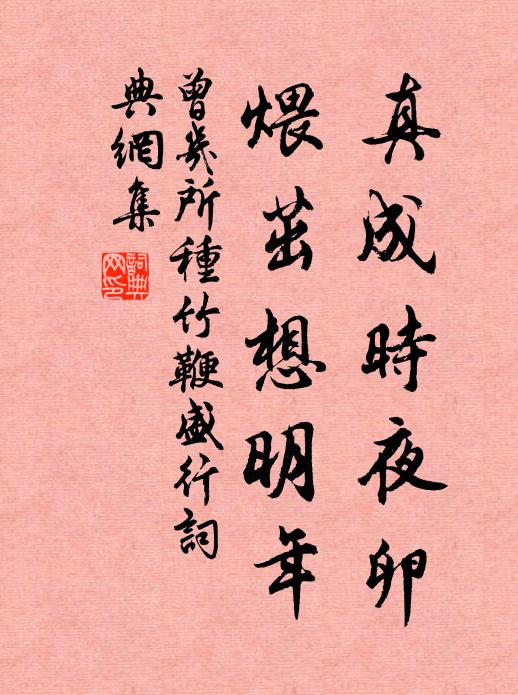 真成時夜卵
煨茁想明年
曾幾所種竹鞭盛行詞
典網集
詞典網印